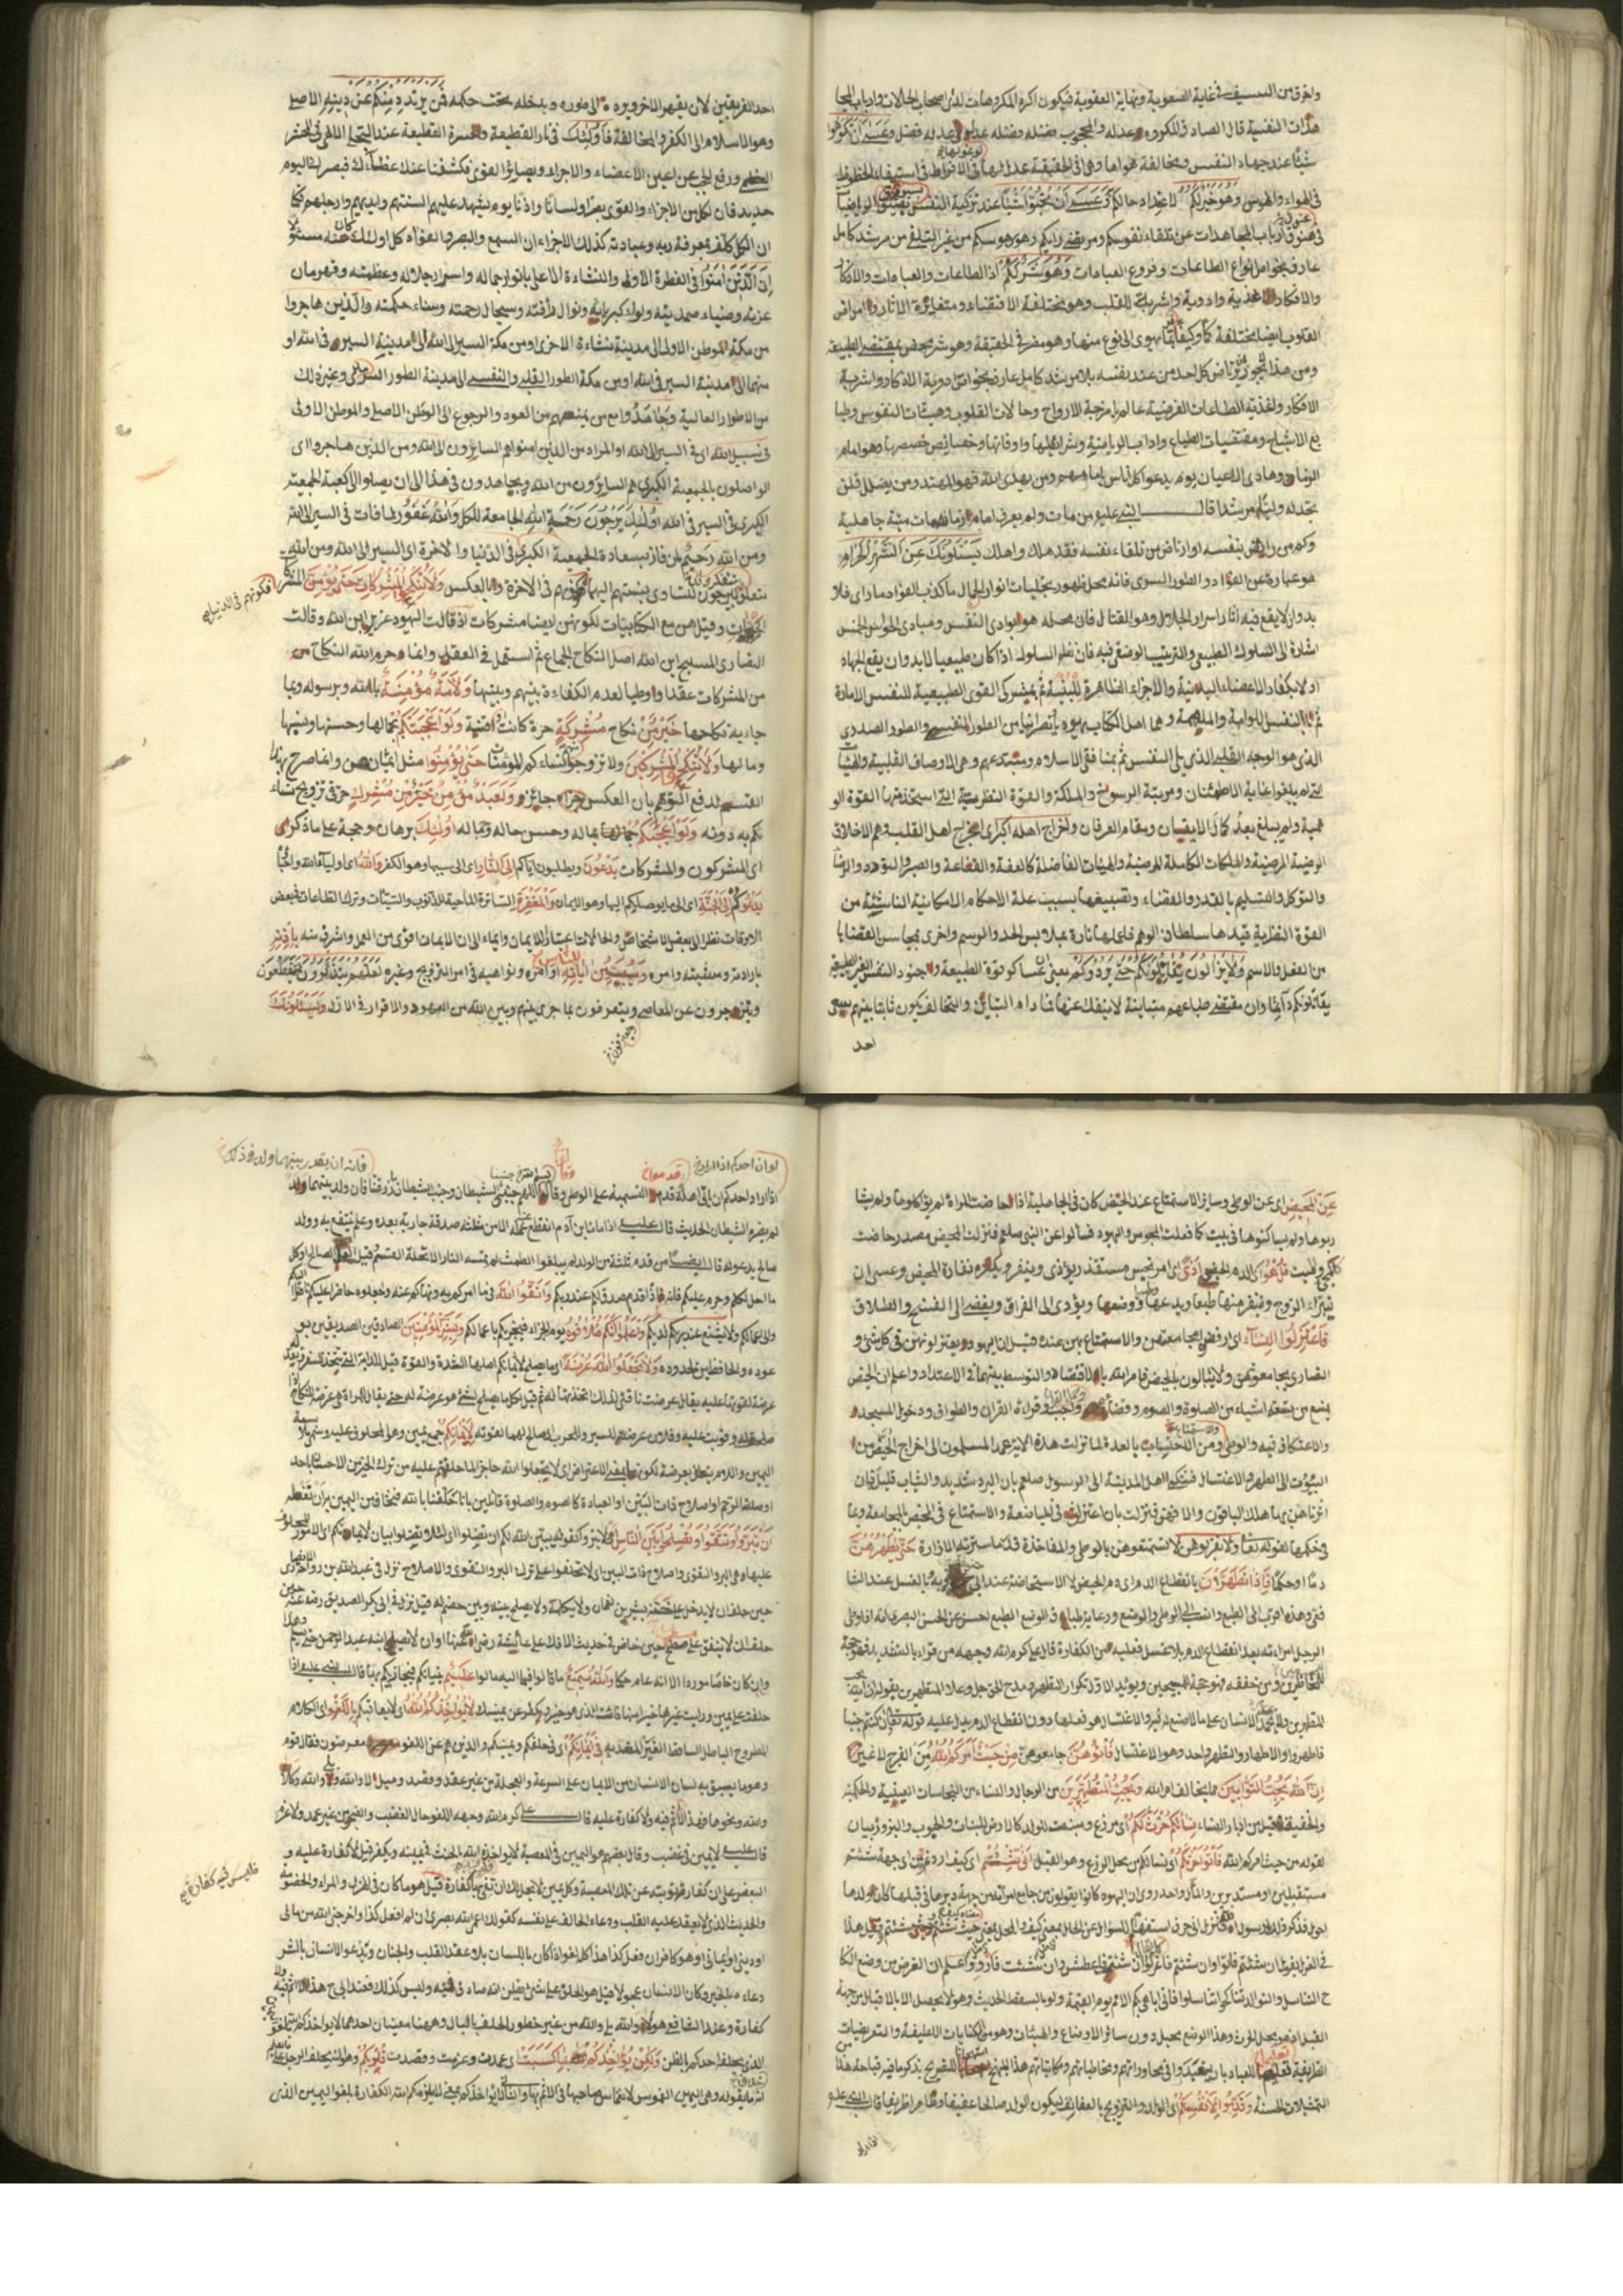 واخرق من السيف في غاية الصعوبة ونهاية العقوبة فيكون اكره المكروهات لدى اصحاب الحالات وارباب المجا
هدات النفسية قال الصادق المكروه عدله والمحبوب فضله وفضله عدله وعدله فضل وعسى ان تكرهوا
شيئا عند جهاد النفس ومخالفة هواها وهي في الحقيقة عدل لها في الافراط في استيفاء الحظوظ
في الهواء والهوس وهو خير لكم لاعتداد حالكم وعسى ان تحبوا شيئا عند تزكية النفس
ارباب المجاهدات عن تلقاء نفوسكم ومقتضى رايكم وهو هوسكم من غير التلقي من مرشد كامل
عارف بخواص انواع الطاعات وفروع العبادات وهو شر لكم اذ الطاعات والعبادات والاذكار
والافكار اغذية وادوية واشربة للقلب وهو مختلفة الاقتضاء ومتغايرة الاثار وامراض
القلوب ايضا مختلفة كما وكيفا يهوى الى نوع منها وهو مضر في الحقيقة وهو شر محض بمقتضى الطبيعة
ومن هذا لا يجوز ان يرتاض كل احد من عند نفسه بلا مرشد كامل عارف بخواص ادوية الاذكار واشربة
الافكار واغذية الطاعات الفرضية عالم بامزجة الارواح وحالات القلوب وهيئات النفوس وطبا
يع الاشباح ومقتضيات الطباع واداب الرياضة وشرائطها واوقاتها وخصائص خصوصها وهو امام
الزمان وهادي الاعيان يوم يدعو كل اناس بامامهم ومن يهدي الله فهو المهتد ومن يضلل فلن
تجد له وليا مرشدا قال النبي عليه من مات ولم يعرف امام زمانه مات ميتة جاهلية
وكم من راض بنفسه او ارتاض من تلقاء نفسه فقد هلك واهلك يسئلونك عن الشهر الحرام
هو عبارة عن الفؤاد والطور السري فانه محل ظهور تجليات انوار الجمال ما كذب الفؤاد ما راى فلا
بد وان لا يقع فيه اثار اسرار الجلال وهو القتال فان محله هو بوادي النفس ومبادى الحواس الخمس
اشارة الى السلوك الطبيعي والترتيب الوضعي فيه فان نظم السلوك اذا كان طبيعيا لا بد وان يقع الجهاد
اولا بكفار الاعضاء البدنية والاجزاء الظاهرة للبنية ثم بمشركي القوى الطبيعية للنفس الامارة
ثم بالنفس اللوامة والملهمة وهما اهل الكتاب يهود نصرانيا من الطور النفسي والطور الصدري
الذي هو الوجه القلبي الذي يلي النفس ثم بمنافقي الاسلام ومبتدعهم وهي الاوصاف القلبية والهيئات
التي لم يبلغوا غاية الاطمئنان ومرتبة الرسوخ والملكة والقوة النظرية التي استخدمتها القوة الو
همية ولم يبلغ بعد كمال الايقان ومقام العرفان واخراج اهله اكبر اي اخراج اهل القلب وهم الاخلاق
الرضية المرضية والملكات الكاملة المرضية والهيئات الفاضلة كالعفة والقناعة والصبر والتودد والرضا
والتوكل والتسليم بالقدر والقضاء وتضييعها بسبب غلبة الاحكام الامكانية الناشئة من
القوة النظرية قيدها سلطان الوهم فاعملها تارة بملابس الحد والرسم واخرى بمجالس القضايا
من العقل والاسم ولا يزالون يقاتلونكم حتى يردوكم يعني عساكر قوة الطبيعة وجنود النفس الغير المطيعة
يقاتلونكم دائما وان مقتضى طباعهم متباينة لا ينفك عنها فما دام التباين والتخالف يكون ثابتا بينهم يسعى
احد
احد الفريقين لان يقهر الاخر ويرده الى طوره ويدخله تحت حكمه فمن يرتدد منكم عن دينه الاصلي
وهو الاسلام الى الكفر والمخالفة فاولئك في نار القطيعة وحسرة الفظيعة عند التجلي القاهري في الحشر
العظمى ورفع الحجب عن اعين الاعضاء والاجزاء وبصائر القوى فكشفنا عنك غطاءك فبصرك اليوم
حديد فان لكل من الاجزاء والقوى بصرا ولسانا واذنا يوم يشهد عليهم السنتهم وايديهم وارجلهم فكما
ان الكل كلف بمعرفة ربه وعبادته كذلك الاجزاء ان السمع والبصر والفؤاد كل اولئك كان عنه مسئولا
ان الذين امنوا في الفطرة الاولى والنشاءة الاعلى بانوار جماله واسرار جلاله وعظمته وقهرمان
عزته وضياء صمديته ولواء كبريائه ونوال رأفته وسجال رحمته وسناء حكمته والذين هاجروا
من مكة الموطن الاول الى مدينة نشاءة الاخرى او من مكة السير الى الله الى مدينة السير في الله او
منهما الى مدينة السير في الله او من مكة الطور القلبي والنفسي الى مدينة الطور السري وغير ذلك
من الاطوار العالية وجاهدوا مع من يمنعهم من العود والرجوع الى الوطن الاصلي والموطن الاولى
في سبيل الله اي في السير الى الله او المراد من الذين امنوا هم السايرون الى الله ومن الذين هاجروا اي
الواصلون بالجمعية الكبرى هم السايرون من الله ويجاهدون في هذا الى ان يصلوا الى كعبة الجمعية
الكبرى في السير في الله اولئك يرجون رحمة الله الجامعة للكل والله غفور لما فات في السير الى الله
ومن الله رحيم لمن فاز بسعادة الجمعية الكبرى في الدنيا والاخرة اي السير الى الله ومن الله
متعلق بيرجون لتساوى نسبتهم اليهما في الاخرة وبالعكس ولا تنكحوا المشركات حتى يؤمن المشركا
فكونهم في الدنيا
وقيل هن مع الكتابيات لكونهن ايضا مشركات اذ قالت اليهود عزير ابن الله وقالت
النصارى المسيح ابن الله اصل النكاح الجماع ثم استعمل في العقد وانما حرم الله النكاح
من المشركات عقدا ووطيا لعدم الكفاءة بينهم وبينها ولامة مؤمنة بالله وبرسوله وبما
جاء به نكاحها خير من نكاح مشركة حرة كانت او قنية ولو اعجبتكم بجمالها وحسنها ونسبها
ومالها ولا تنكحوا المشركين ولا تزوجوا نساءكم المؤمنات حتى يؤمنوا مثل ايمانهن وانما صرح بهذا
القسم لدفع التوهم بان العكس جائز ولعبد مؤمن خير من مشرك حر في تزويج نساء
كم به دونه ولو اعجبكم بماله وحسن حاله وجماله اولئك برهان وحجة على ما ذكر اي
اي المشركون والمشركات يدعون ويطلبون اياكم الى النار اي الى سببها وهو الكفر والله اي اولياء الله واحباء
يدعوكم الى الجنة اي الى ما يوصلكم اليها وهو الايمان والمغفرة الساترة الماحية للذنوب والسيئات وترك الطاعات في بعض
الاوقات نظرا الى بعض الاشخاص والحالات اعتبارا للايمان وايماء الى ان الايمان اقوى من العمل واشرف منه باذنه
بارادته ومشيته وامره ويبين اياته للناس اوامره ونواهيه في امر التزويج وغيره لعلهم يتذكرون يتعظون
وينزجرون عن المعاصي ويتعرفون بما جرى بينهم وبين الله من العهود والاقرار في الازل ويسئلونك
عن المحيض اي عن الوطى وساير الاستمتاع عند الحيض كان في الجاهلية اذا حاضت المراة لم يؤاكلوها ولم يشا
ربوها ولم يساكنوها في بيت كما فعلت المجوس واليهود فسألوا عن النبي صلعم فنزلت المحيض مصدر حاضت
كالمجيء والمبيت قل هو اي الدم الحيض اذى اي امر نجس مستقذر يؤذى وينفر ويكره نفارة المحيض وعسى ان
يتبراء الزوج وينفر منها طبعا ويدعها ووضعها ويؤدي الى الفراق ويفضي الى الفسخ والطلاق
فاعتزلوا النساء اي ارفضوا مجامعتهن والاستمتاع بهن عنده قيل ان اليهود يعتزلونهن في كل شيء و
النصارى يجامعونهن ولا يبالون بالحيض فامر الله بالاقتصاد والتوسط بينهما في الاعتداد واعلم ان الحيض
يمنع من تسعة اشياء من الصلوة والصوم وقراءة القران والطواف ودخول المسجد
والاعتكاف فيه والوطى ومن الاحتساب بالعدة لما نزلت هذه الاية عمد المسلمون الى اخراج الحيض من
البيوت الى الطهر والاغتسال فشكى اهل المدينة الى الرسول صلعم بان البرد شديد والثياب قليل فان
اثرناهن بها هلك الباقون والا فهن فنزلت بان اعتزلوهن في المباضعة والاستمتاع في الحيض بالمجامعة وما
في حكمها لقوله تعالى ولا تقربوهن لا تستمتعوهن بالوطى والمفاخذة قدما سترته الازارة حتى يطهرن
دما او حكما فاذا تطهرن بانقطاع الدم اي دم الحيض لا الاستحاضة عند ابي بالغسل عند الشا
فعي وهذه اقرب الى الطبع وانسب الى الوطى والوضع ورعاية طباع في الوضع الطبع
الرجل امراءته بعد انقطاع الدم بلا غسل فعليه من الكفارة قال علي كرم الله وجهه من قراء بالتشديد فهو حجة
ومن خفف فهو حجة المبيحين ويؤيد الاول تكرار التطهر ومدح الحق جل وعلا المتطهرين بقوله ان الله يحب
المتطهرين ولا يمدح الانسان على ما لا صنع له فيه والاغتسال هو فعلها دون انقطاع الدم يدل عليه قوله تعالى وان كنتم جنبا
فاطهروا والاطهار والتطهر واحد وهو الاغتسال فأتوهن جامعوهن من حيث امركم الله من الفرج لا غير
ان الله يحب التوابين عما يخالف امر الله ويحب المتطهرين من الرجال والنساء من النجاسات العينية والحكمية
والحقيقة قبل من ادبار النساء نساؤكم حرث لكم اي مزرع ومنبت للولد كالارض للنبات والحبوب والبزور بيان
لقوله من حيث امركم الله فأتوا حرثكم اي نساءكم من محل الزرع وهو القبل انى شئتم اي كيف اردتم من اي جهة شئتم
مستقبلين او مستدبرين والمأتى واحد روى ان اليهود كانوا يقولون من جامع امرأته من جهة دبرها في قبلها كان ولدها
احول فذكر ذلك لرسول الله فنزل انى حرف استفهام للسؤال عن الحال بمعنى كيف والمحل بمعنى حيث شئتم ومتى شئتم وقيل هذا
في العزل يقول ان شئتم فأتوا وان شئتم فاعزلوا ان شئتم وان شئت فارو واعلم ان الغرض من وضع النكا
ح التناسل والتوالد تناكحوا تناسلوا فاني اباهي بكم الامم يوم القيمة ولو بالسقط الحديث وهو لا يحصل الا بالاقبال من جهة
القبل اذ هو محل الحرث وهذا الوضع يحيل دون سائر الاوضاع والهيئات وهو من الكنايات اللطيفة والتعريضات
الظريفة تعليما للعباد بان يتقيدوا في محاوراتهم ومخاطباتهم ومكاتباتهم هذا النهج للتصريح بذكر ما فيه قباحة هذا
التمثيلات الحسنة وقدموا لانفسكم اي الولد والتزويج بالعفائف ليكون الولد صالحا عفيفا وطاهرا ظريفا قال النبي عليه
اذا اراد
لو ان احدكم اذا اراد
فانه ان يقدر بينهما ولد في ذلك
اذا اراد احدكم ان يأتي اهله قدم التسمية على الوطى وقال اللهم جنبني الشيطان وجنب الشيطان ما رزقتنا فان ولد بينهما ولد
لم يضره الشيطان الحديث قال عليه اذا مات ابن ادم انقطع عمله الا من ثلثة صدقة جارية بعده وعلم ينتفع به وولد
صالح يدعو له قال ايضا من قدم ثلثة من الولد لم يبلغوا الطمث لم تمسه النار الا تحلة القسم قيل العمل الصالح او كل
ما احل لكم وحرم عليكم فانه اذا قدم صدقتكم عند ربكم واتقوا الله فيما امركم به ونهاكم عنه واجعلوه حاضرا عليكم ناظرا
والى اعمالكم ولا يضيع عند ربكم لديكم واعلموا انكم ملاقوه يوم الجزاء فيجزيكم باعمالكم وبشر المؤمنين الصادقين الصديقين بو
عوده والحافظين لحدوده ولا تجعلوا الله عرضة اي ما يصلح لايمانكم اصلها الشدة والقوة قيل للدابة التي يتخذ للسفر وبعد
عرضة لقوتها عليه يقال عرضت ناقتي لذلك اتخذتها له ثم قيل لكل ما يصلح لشيء هو عرضة له حتى يقال للمراة هي عرضة للنكاح اذا
صلحت له وقويت عليه وفلان عرضة للسير والحرب اي صالح لهما لقوته لايمانكم جمع يمين وهو المحلوف عليه
ان تبروا وتتقوا وتصلحوا بين الناس
عليها وهي البر والتقوى واصلاح ذات البين اي لا تحلفوا على ترك البر والتقوى والاصلاح نزل في عبد الله بن رواحة
حين حلف ان لا يدخل على ختنه بشير بن نعمان ولا يكلمه ولا يصلح بينه وبين خصم له قيل نزل في ابي بكر الصديق رضي الله عنه
حلف ان لا ينفق على مسطح حين خاض في حديث الافك على عائشة رضي الله عنها او ان لا يصل ابنه عبد الرحمن حتى يسلم
وان كان خاصا موردا الا انه عام حكما والله سميع ما قالوا فيها اليه مالوا عليم بنياتكم فيجازيكم بها قال النبي عليه اذا
حلفت على يمين ورايت غيرها خيرا منها فأت الذي هو خير وكفر عن يمينك لا يؤاخذكم الله اي لا يعاقبكم باللغو اي الكلام
المطروح الباطل الساقط الغير المعتد به في ايمانكم اي في حلفكم ويمينكم والذين هم عن اللغو معرضون فقال قوم
وهو ما يسبق به لسان الانسان من الايمان على السرعة والعجلة من غير عقد وقصد ومثل لا والله وبلى والله وكلا
والله ونحوها فهذا لا اثم فيه ولا كفارة عليه قال علي كرم الله وجهه اللغو حال الغضب والضجر من غير عمد ولا عزم
قال عليه لا يمين في غضب وقال بعضهم هو اليمين في المعصية لا يؤاخذه الله بالحنث في يمينه ويكفر قيل لا كفارة عليه و
فليس فيه كفارة
البعض على ان كفارته توبته عن تلك المعصية وكل يمين لا يحل لك ان تفي بها كفارة قيل هو ما كان في الهزل والمراء والخصومة
والحديث الذي لا يعقد عليه القلب ودعاء الحالف على نفسه كقولك اعمى الله بصري ان لم افعل كذا واخرجني الله من مالي
او ديني او ايماني او هو كافر ان فعل كذا هذا كله لغو اذا كان باللسان بلا عقد القلب والجنان ويدعو الانسان بالشر
دعاءه بالخير وكان الانسان عجولا قيل هو الحلف على شيء يظن انه صادق فيه وليس كذلك فعند ابي ح هذا لا اثم فيه ولا
كفارة وعند الشافعي هو لا والله وبلى والله من غير خطور الحلف بالبال وههنا معنيان احدهما لا يؤاخذكم بلغو
الذي يحلف احدكم بالظن ولكن يؤاخذكم بما كسبت اي عمدت وعزمت وقصدت قلوبكم وهو ان يحلف الرجل على
لا يؤاخذكم بمعنى لا يلزمكم الله الكفارة بلغو اليمين الذي